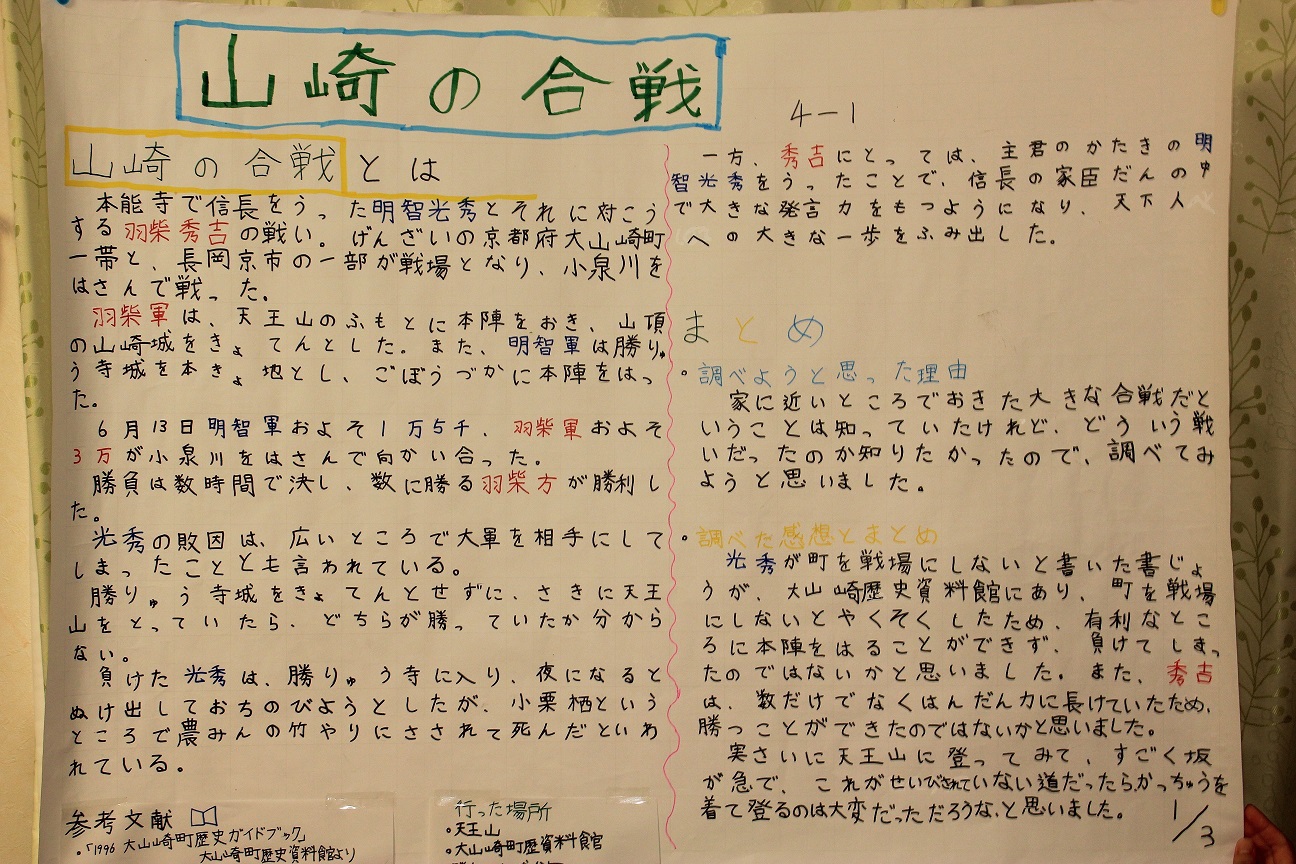 山崎の合戦
4-1
山崎の合戦とは
本能寺で信長をうった明智光秀とそれに対こう
する羽柴秀吉の戦い。げんざいの京都府大山崎町
一帯と、長岡京市の一部が戦場となり、小泉川を
はさんで戦った。
羽柴軍は、天王山のふもとに本陣をおき、山頂
の山崎城をきょてんとした。また、明智軍は勝りゅ
う寺城を本きょ地とし、ごぼうづかに本陣をはっ
た。
6月13日明智軍およそ1万5千、羽柴軍およそ
3万が小泉川をはさんで向かい合った。
勝負は数時間で決し、数に勝る羽柴方が勝利し
た。
光秀の敗因は、広いところで大軍を相手にして
しまったこととも言われている。
勝りゅう寺城をきょてんとせずに、さきに天王
山をとっていたら、どちらが勝っていたか分から
ない。
負けた光秀は、勝りゅう寺に入り、夜になると
ぬけ出しておちのびようとしたが、小栗栖という
ところで農みんの竹やりにさされて死んだといわ
れている。
参考文献
・「1996 大山崎町歴史ガイドブック」
大山崎町歴史資料館より
行った場所
・天王山
・大山崎町歴史資料館
一方、秀吉にとっては、主君のかたきの明
智光秀をうったことで、信長の家臣だんの中
で大きな発言力をもつようになり、天下人
への大きな一歩をふみ出した。
まとめ
・調べようと思った理由
家に近いところでおきた大きな合戦だと
いうことは知っていたけれど、どういう戦
いだったのか知りたかったので、調べてみ
ようと思いました。
・調べた感想とまとめ
光秀が町を戦場にしないと書いた書じょ
うが、大山崎歴史資料館にあり、町を戦場
にしないとやくそくしたため、有利なとこ
ろに本陣をはることができず、負けてしまっ
たのではないかと思いました。また、秀吉
は、数だけでなくはんだん力に長けていたため、
勝つことができたのではないかと思いました。
実さいに天王山に登ってみて、すごく坂
が急で、これがせいびされていない道だったらかっちゅうを
着て登るのは大変だっただろうな、と思いました。
1/3